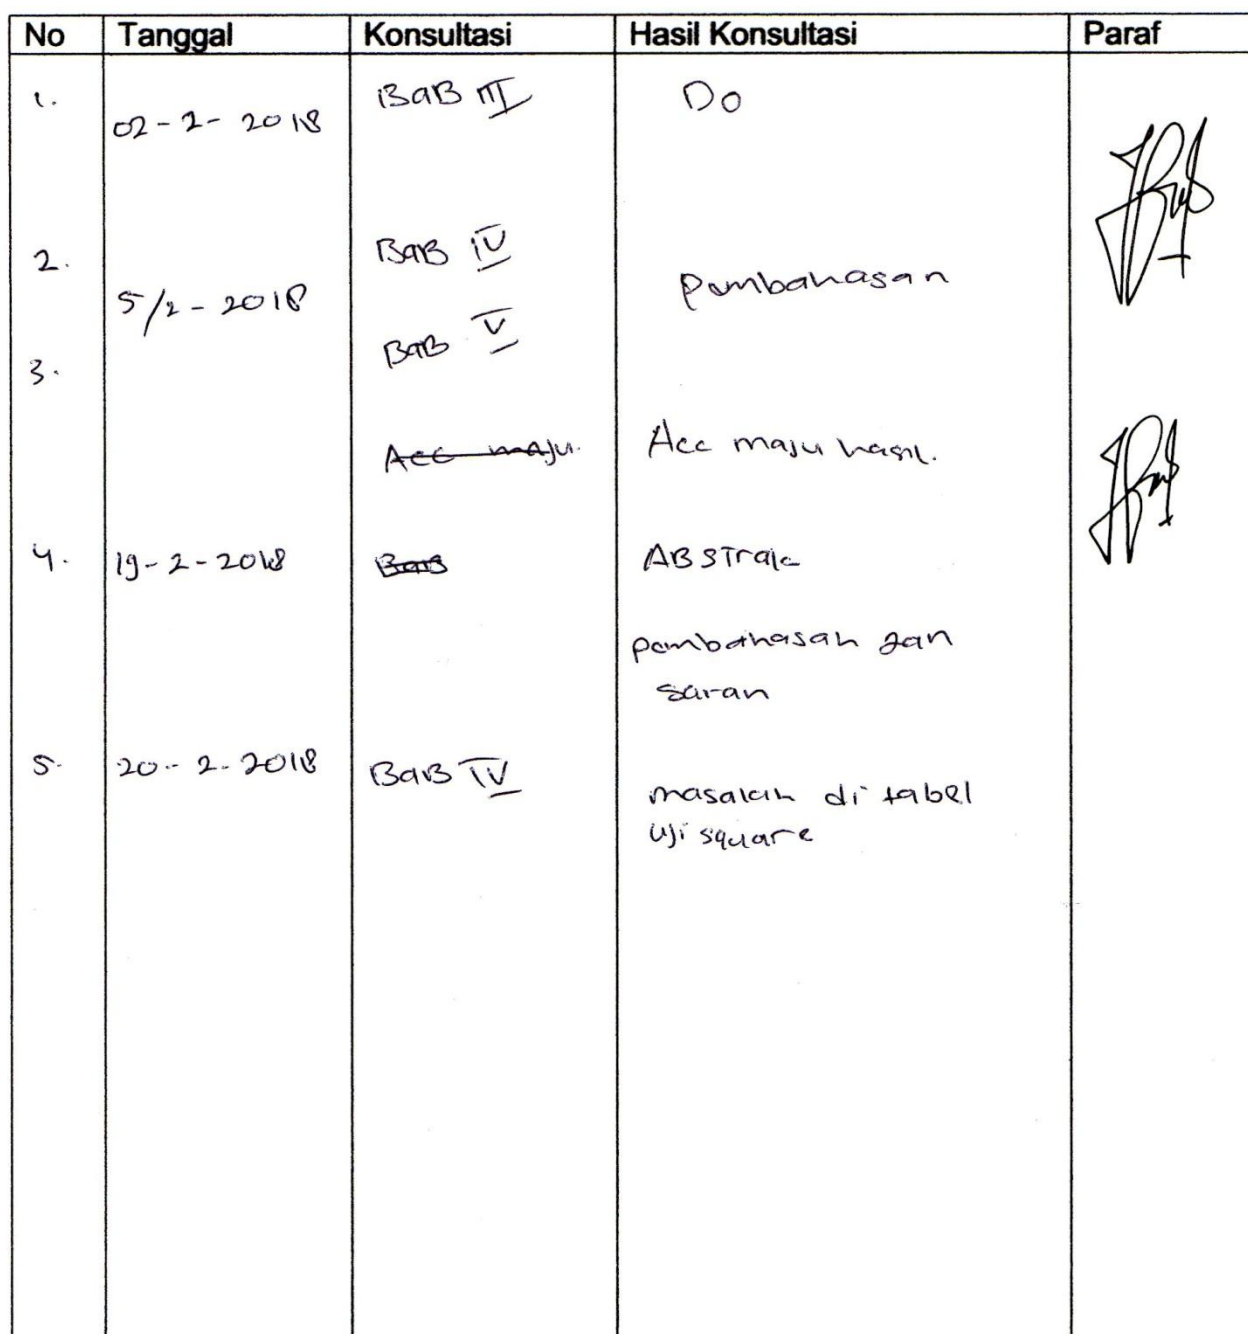 No Tanggal Konsultasi Hasil Konsultasi Paraf
1. 02-2-2018 BaB III Do
2. 5/2-2018 BaB IV Pembahasan
3. BaB V
Acc maju. Acc maju hasil.
4. 19-2-2018 BaB ABSTrak
pembahasan dan
saran
5. 20-2-2018 BaB IV masalah di tabel
uji square